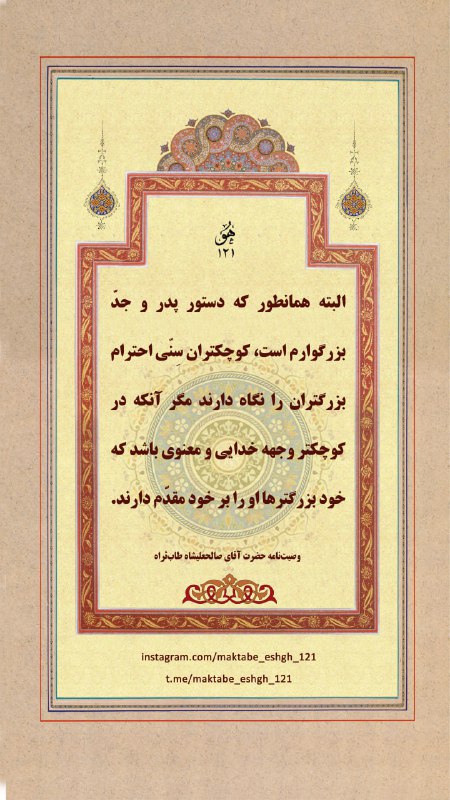 هُو
۱۲۱
البته همانطور که دستور پدر و جدّ
بزرگوارم است، کوچکتران سِنّی احترام
بزرگتران را نگاه دارند مگر آنکه در
کوچکتر وجهه خدایی و معنوی باشد که
خود بزرگترها او را بر خود مقدّم دارند.
وصیت‌نامه حضرت آقای صالحعلیشاه طاب‌ثراه
instagram.com/maktabe_eshgh_121
t.me/maktabe_eshgh_121